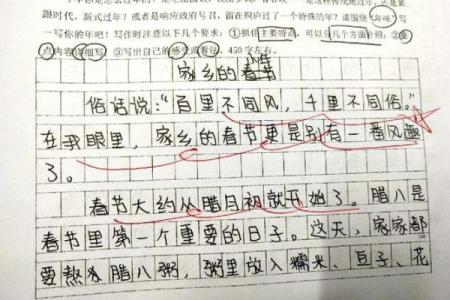 跟时代，新式过年？或者是响应政府号召，留在桐庐过了一个特殊的年？请围绕"年味"写
一写你的年吧！写作时注意以下几个要求：①抓住主要特点，可以分几个方面介绍；②重
点内容详细写；③写出自己的感受或看法，450字左右。
家乡的春节
俗话说："百里不同风，千里不同俗。"
在我眼里，家乡的春节更是别有一番风趣
了。
春节大约从腊月初就开始了。腊八是
春节里第一个重要的日子。这天，家家都
要熬腊八粥，粥里放入糯米、豆子、花